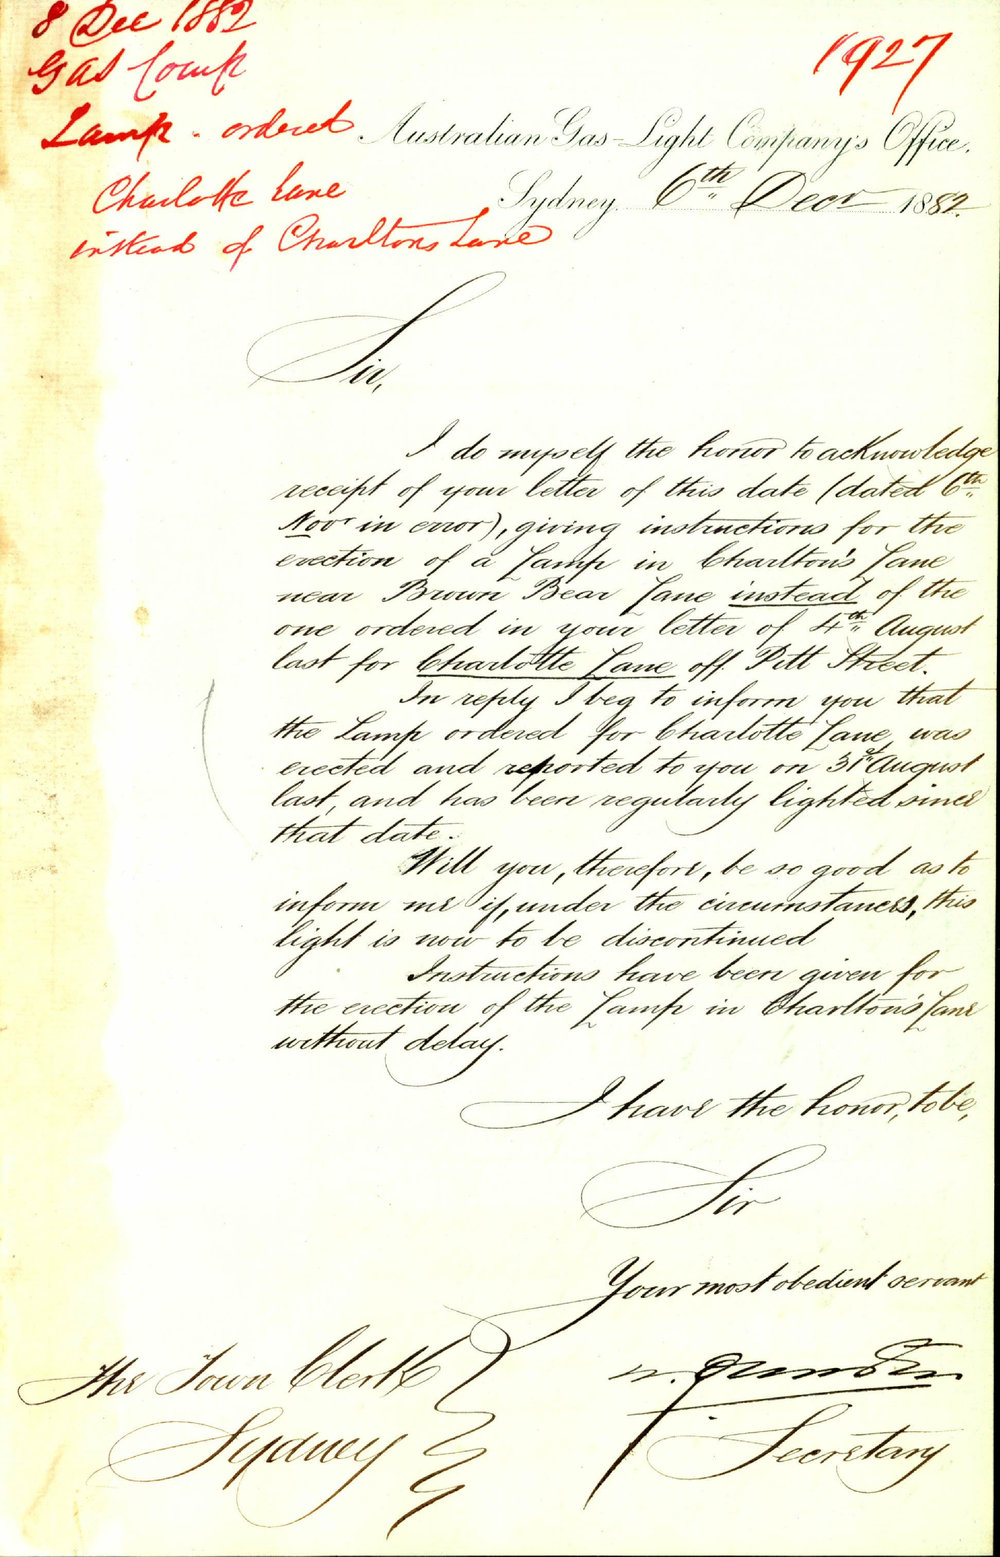 8 Dec 1882
Gas Comp
Lamp - ordered
Charlotte Lane
instead of Charltons Lane
1927
Australian Gas-Light Company's Office,
Sydney 6th Decr 1882.
Sir,
I do myself the honor to acknowledge
receipt of your letter of this date (dated 6th
Novr in error), giving instructions for the
erection of a Lamp in Charlton's Lane
near Brown Bear Lane instead of the
one ordered in your letter of 4th August
last for Charlotte Lane off Pitt Street.
In reply I beg to inform you that
the Lamp ordered for Charlotte Lane, was
erected and reported to you on 31st August
last, and has been regularly lighted since
that date.
Will you, therefore, be so good as to
inform me if, under the circumstances, this
light is now to be discontinued
Instructions have been given for
the erection of the Lamp in Charlton's Lane
without delay.
I have the honor, to be,
Sir
Your most obedient servant
The Town Clerk
Sydney
Secretary